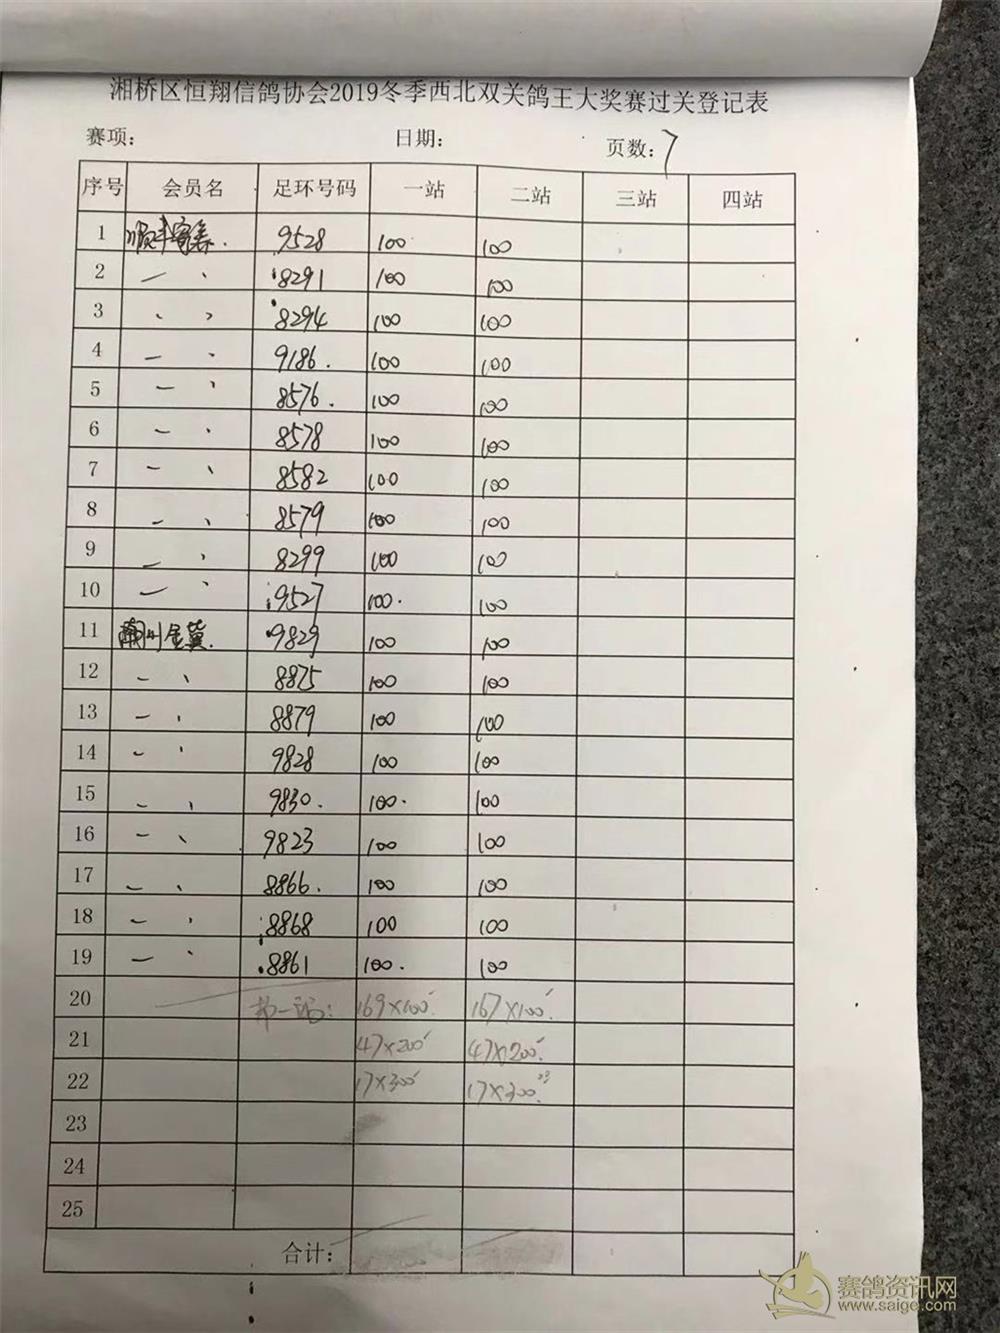 湘桥区恒翔信鸽协会2019冬季西北双关鸽王大奖赛过关登记表
赛项: 日期: 页数: 7
序号 会员名 足环号码 一站 二站 三站 四站
1 顺丰窝集. 9528 100 100
2 〃 8291 100 100
3 〃 8294 100 100
4 〃 9186. 100 100
5 〃 8576. 100 100
6 〃 8578 100 100
7 〃 8582 100 100
8 〃 8579 100 100
9 〃 8299 100 100
10 〃 9527 100. 100
11 9829 100 100
12 〃 8875 100 100
13 〃 8879 100 100
14 〃 9828 100 100
15 〃 9830. 100. 100
16 〃 9823 100 100
17 〃 8866. 100 100
18 〃 8868 100 100
19 〃 8861 100. 100
20 第一站: 169×100 167×100
21 47×200 47×200
22 17×300 17×300
23
24
25
合计:
赛鸽资讯网
www.saige.com